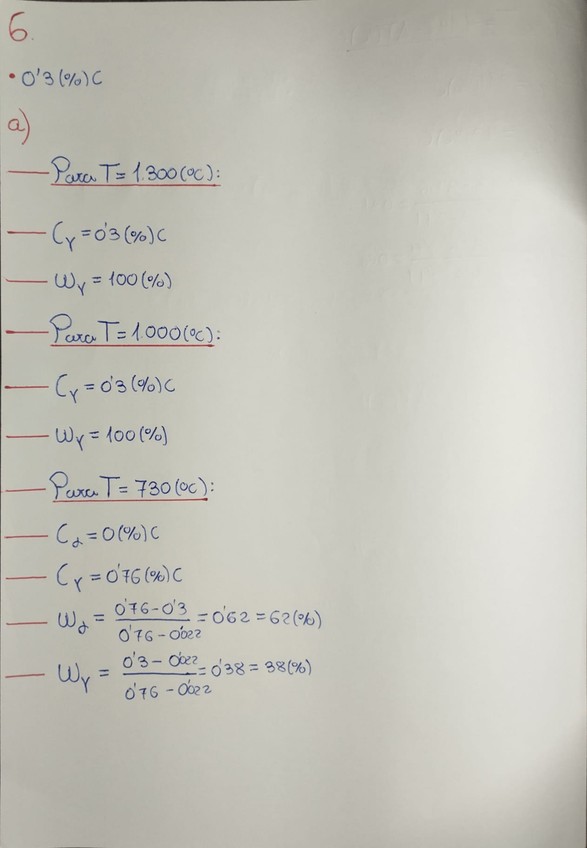 6.
• 0'3(%)C
a)
— Para T = 1.300(ºC):
— Cγ = 0'3(%)C
— Wγ = 100(%)
— Para T = 1.000(ºC):
— Cγ = 0'3(%)C
— Wγ = 100(%)
— Para T = 730(ºC):
— Cα = 0(%)C
— Cγ = 0'76(%)C
— Wα = (0'76 - 0'3) / (0'76 - 0'022) = 0'62 = 62(%)
— Wγ = (0'3 - 0'022) / (0'76 - 0'022) = 0'38 = 38(%)